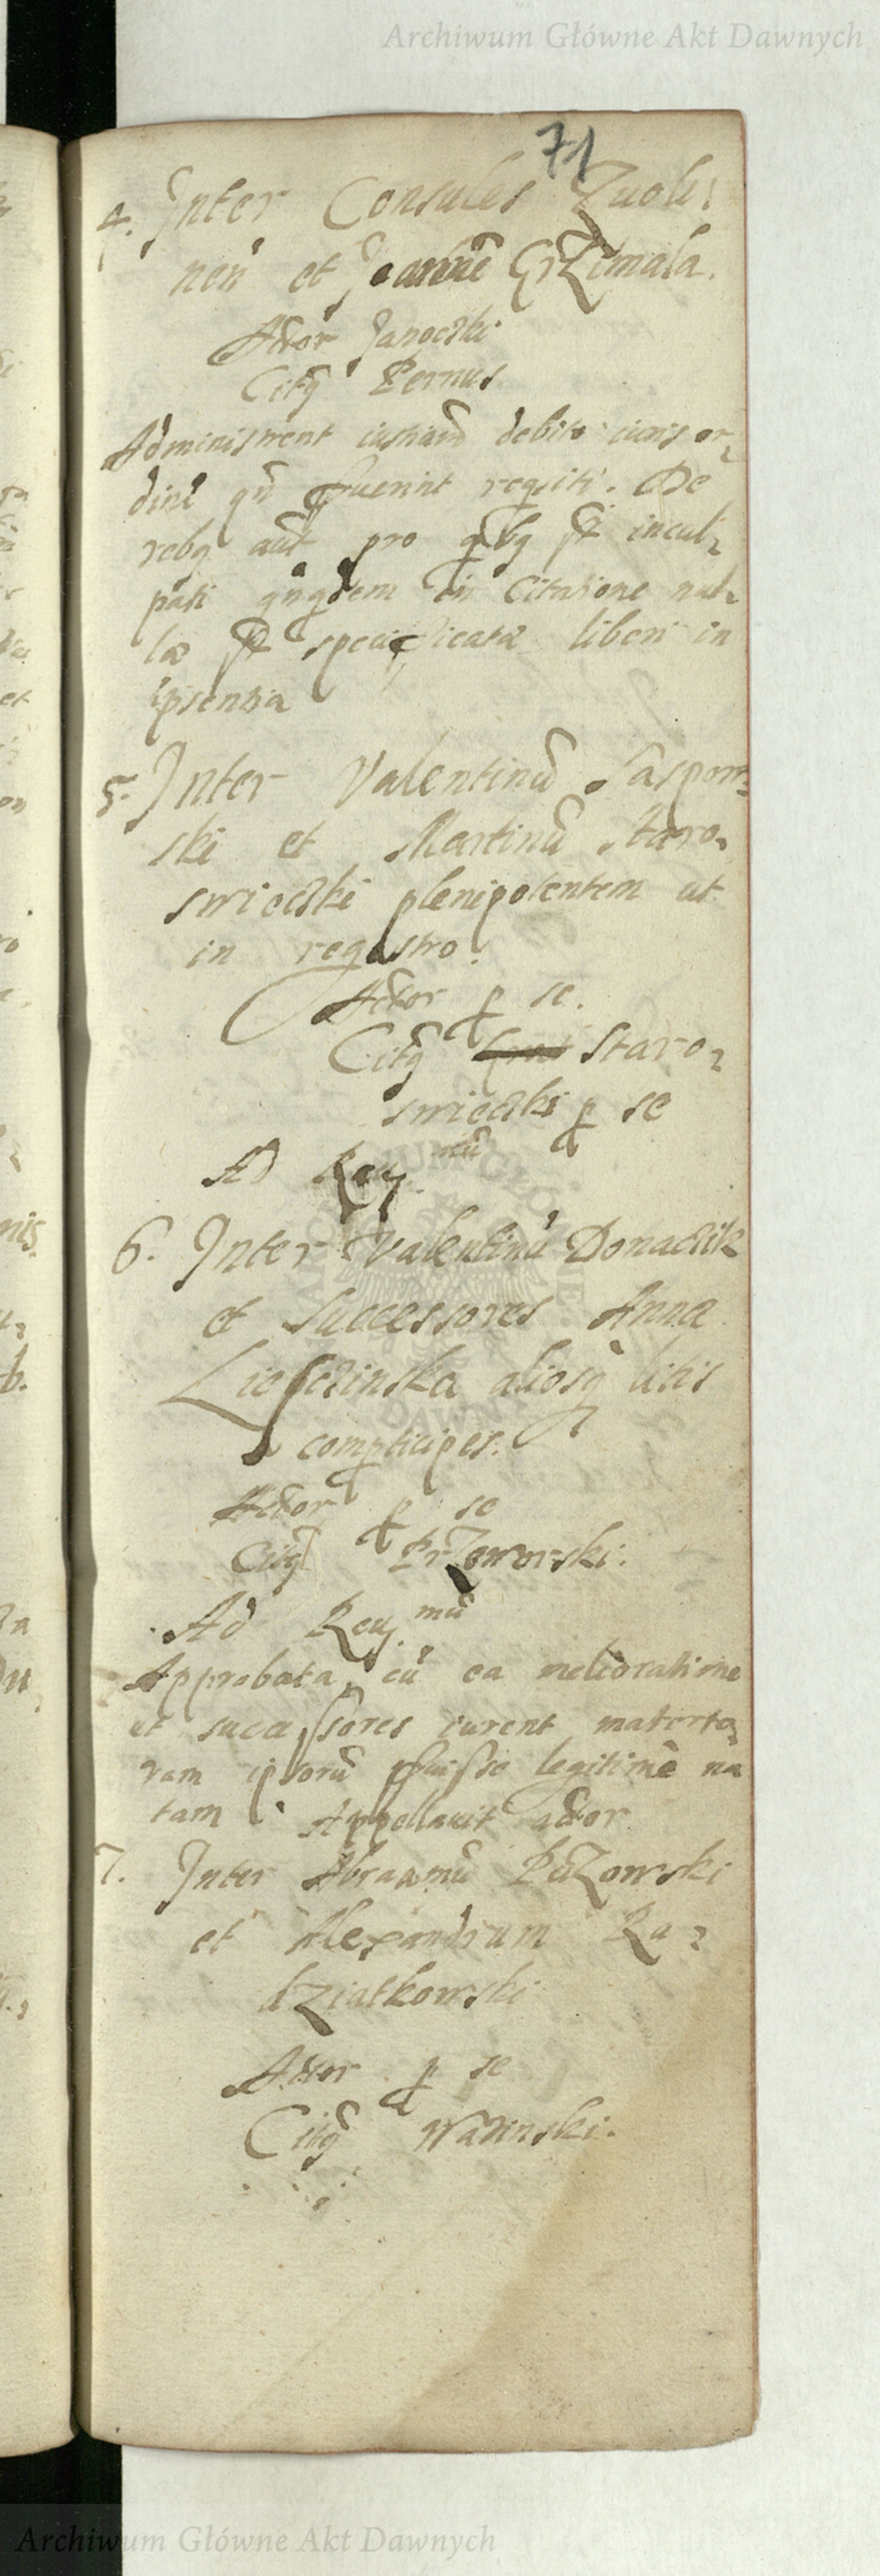 Archiwum Główne Akt Dawnych
71
4. Inter Consules Zuoli:
nen et Joannē Grzimala.
Actor Janoczki
Citq Pernus
Administrent iustiam debito iuris or¬
dine qn fuerint reqsiti. De
rebq aut pro qbq st incul¬
pati qnqdem in Citatione nul¬
la st specificata liberi in
ipsentia
5. Inter Valentinū Saspow¬
ski et Martinū Staro¬
swieczki plenipotentem ut
in registro.
Actor p se.
Citq Staro¬
swieczki p se
Ad Reuj. mū
6. Inter Valentinū Donaczik
et Successores Anna
Liesczinska aliosq litis
comparticipes.
Actor p se
Citq Przeworski.
Ad Reuj. mū
Approbata, cū ea melioratione
ut successores iurent materte¬
ram ipsorū fuisse legitimè na
tam Appellauit actor
7. Inter Abraamū Puzowski
et Alexandrum Ra¬
dziatkowski
Actor p se
Citq Wazinski.
Archiwum Główne Akt Dawnych